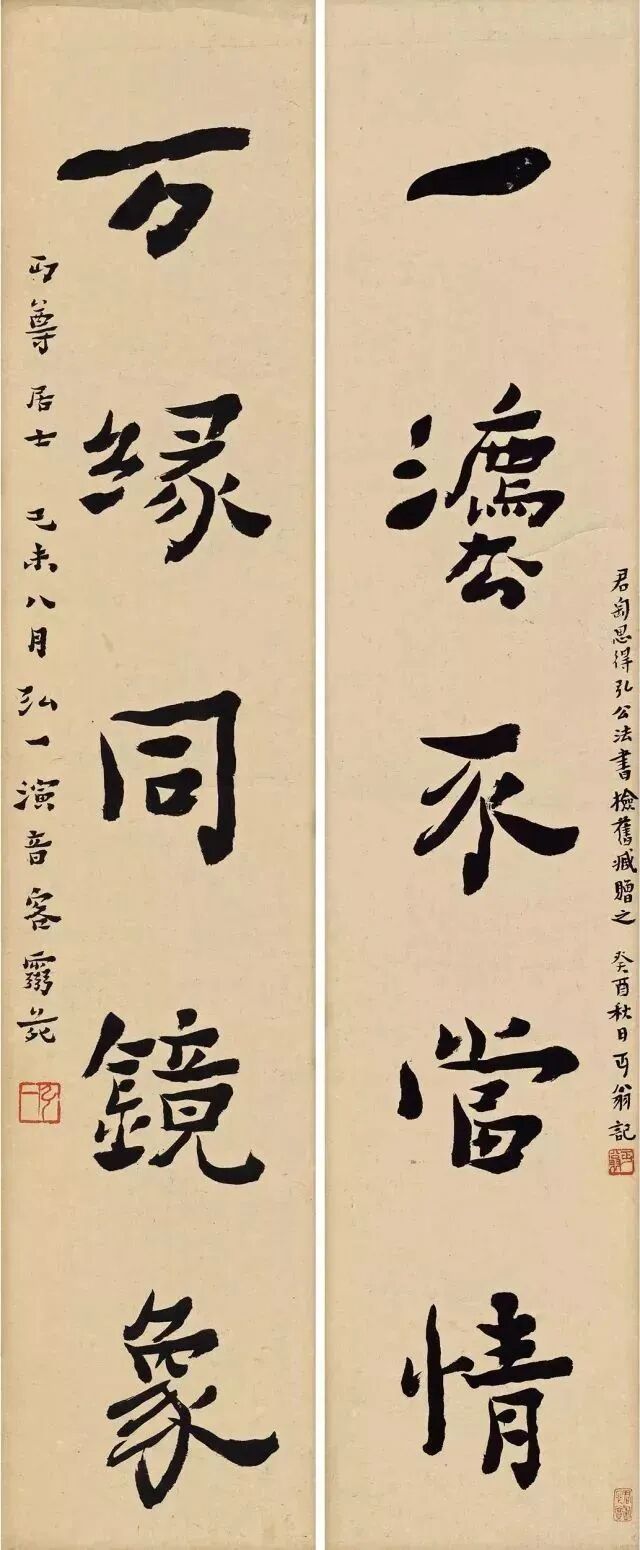 君匋思得弘公法書檢舊臧贈之 癸酉秋日丏翁記
一灋不當情
万緣同鏡象
丏尊居士 己未八月弘一演音客靈苑
弘一